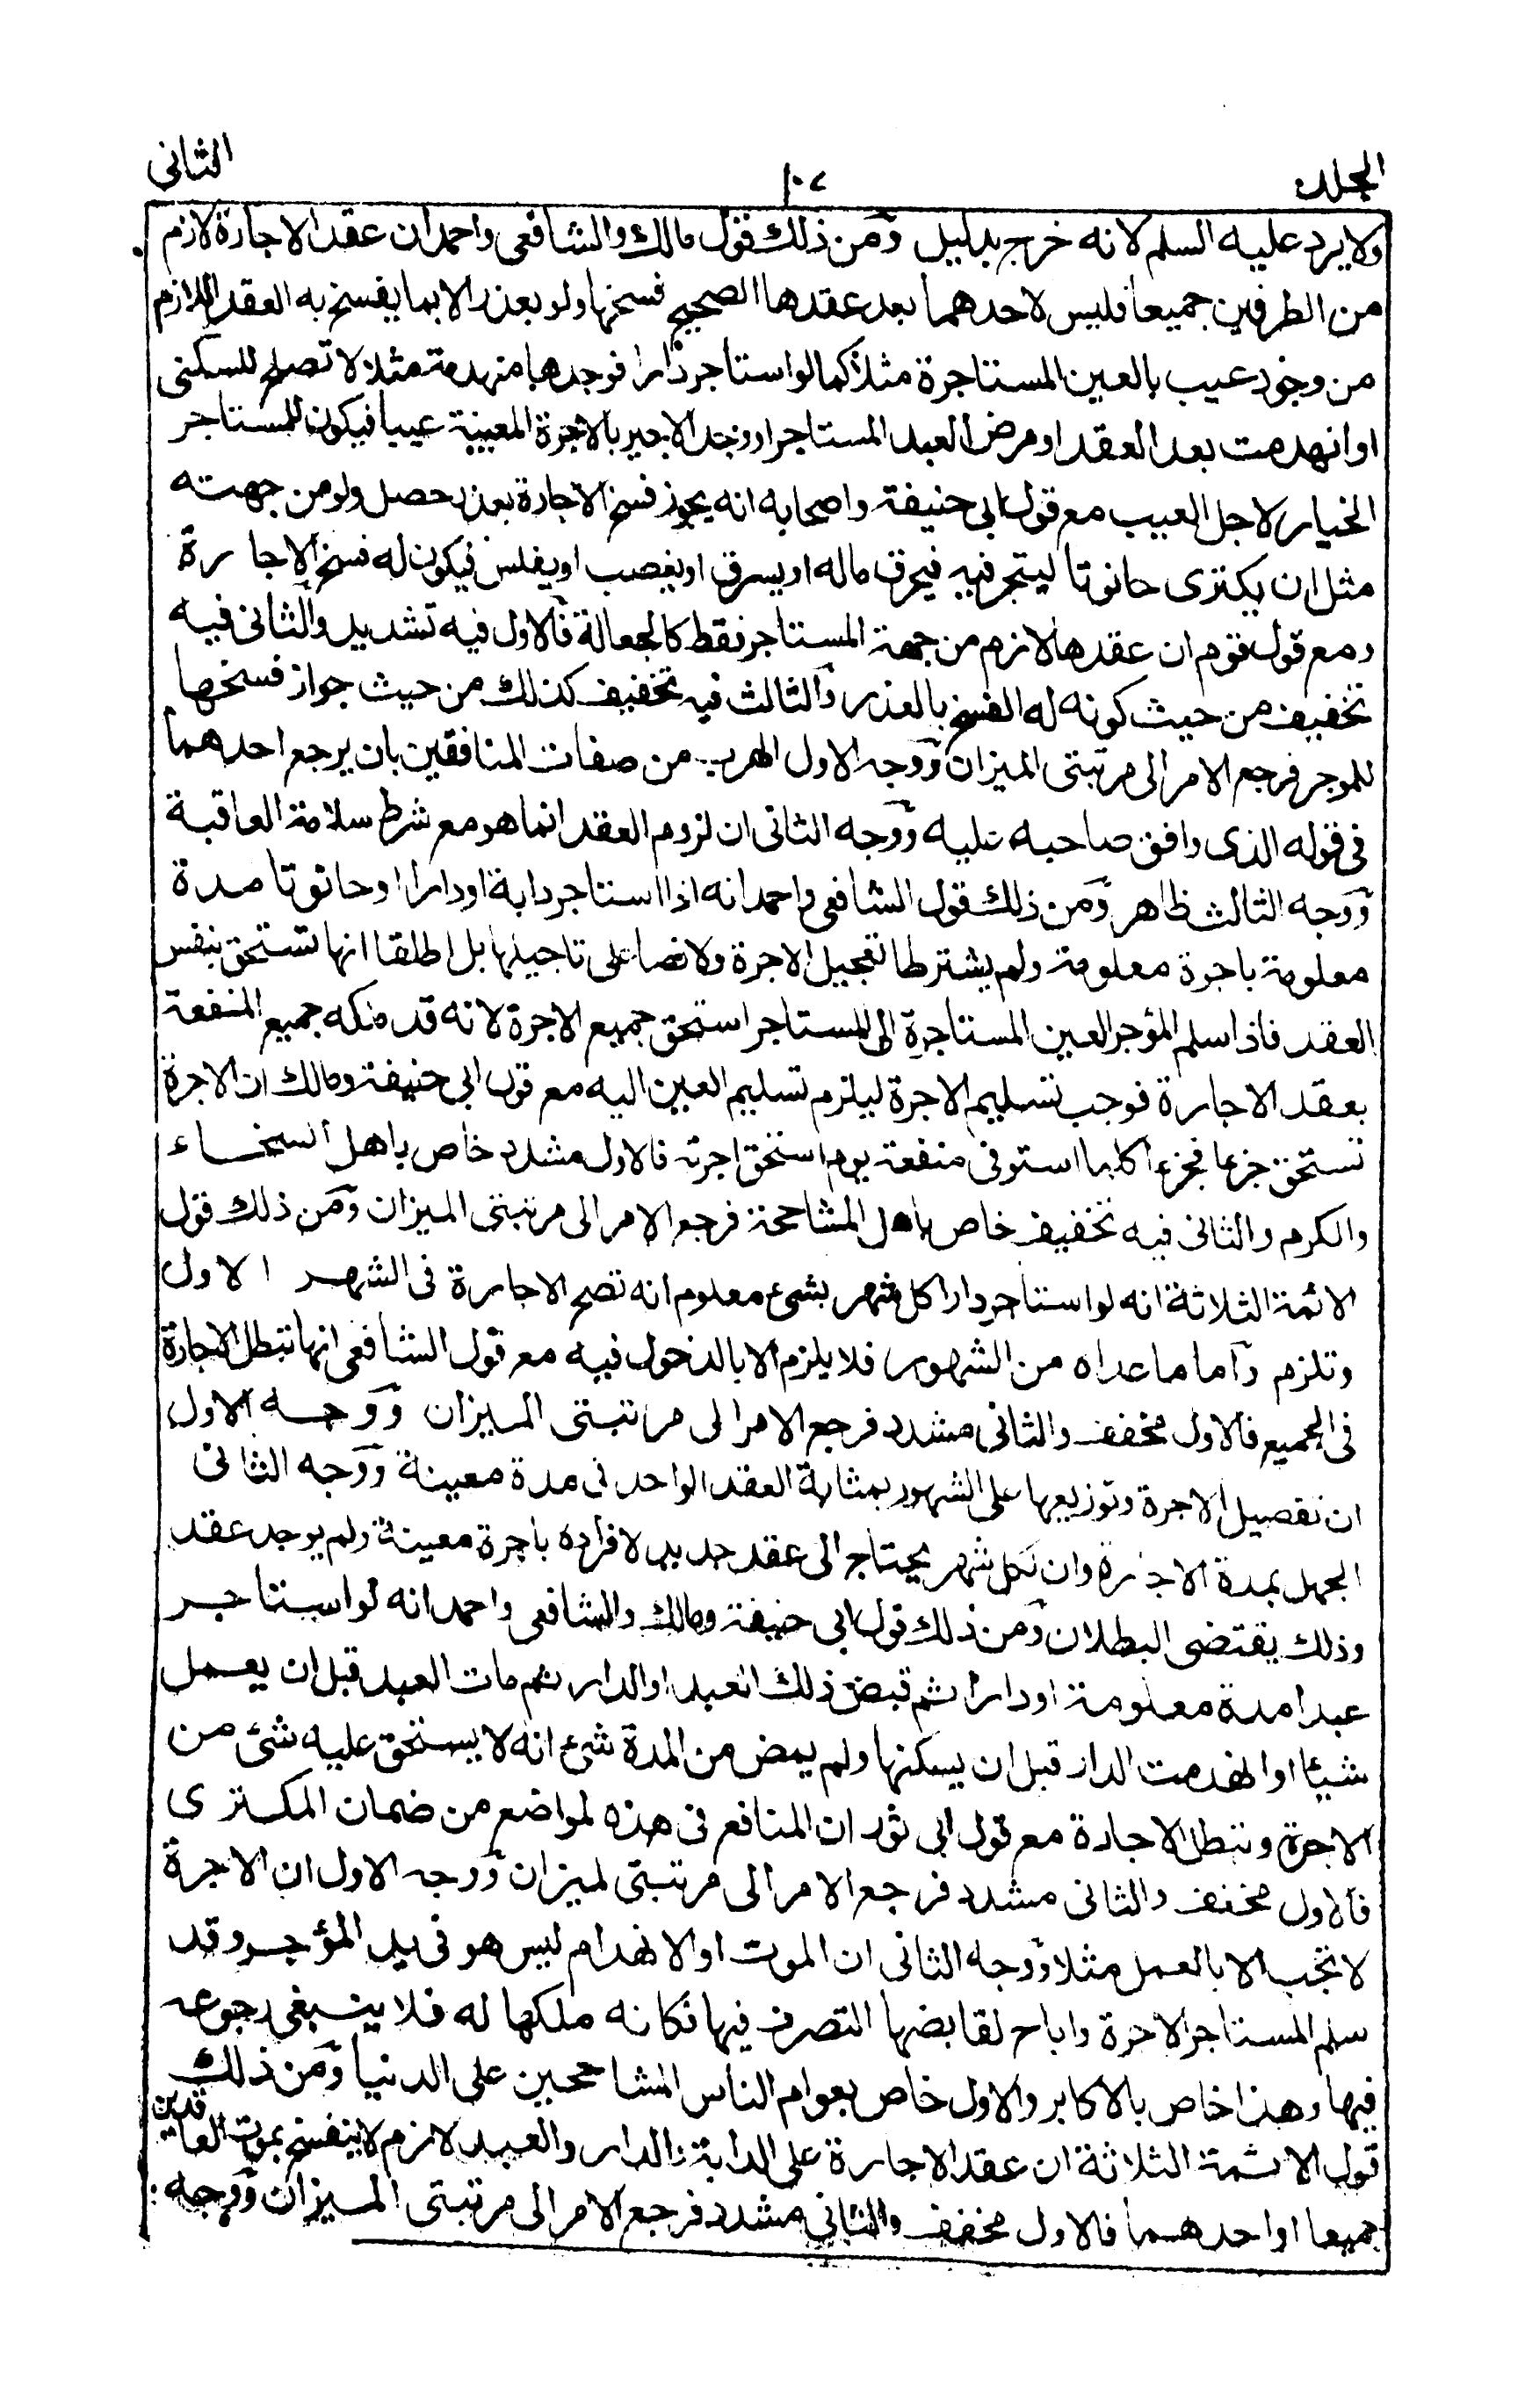 المجلد ١٠٧ الثانى
ولا يرد عليه السلم لانه خرج بدليل ومن ذلك قول مالك والشافعى واحمد ان عقد الاجارة لازم
من الطرفين جميعا فليس لاحدهما بعد عقدها الصحيح فسخها ولو بعذر الا بما يفسخ به العقد اللازم
من وجود عيب بالعين المستاجرة مثلا كما لو استاجر دارا فوجدها منهدمة مثلا لا تصلح للسكنى
او انهدمت بعد العقد او مرض العبد المستاجر او وجد الاجير بالاجرة المعينة عيبا فيكون للمستاجر
الخيار لاجل العيب مع قول ابى حنيفة واصحابه انه يجوز فسخ الاجارة بعذر حصل ولو من جهته
مثل ان يكترى حانوتا ليتجر فيه فيحرق ماله او يسرق او يغصب او يفلس فيكون له فسخ الاجارة
ومع قول قوم ان عقدها لازم من جهة المستاجر فقط كالجعالة فالاول فيه تشديد والثانى فيه
تخفيف من حيث كونه له الفسخ بالعذر والثالث فيه تخفيف كذلك من حيث جواز فسخها
للموجر فرجع الامر الى مرتبتى الميزان ووجه الاول الهرب من صفات المنافقين بان يرجع احدهما
فى قوله الذى وافق صاحبه عليه ووجه الثانى ان لزوم العقد انما هو مع شرط سلامة العاقبة
ووجه الثالث ظاهر ومن ذلك قول الشافعى واحمد انه اذا استاجر دابة او دارا او حانوتا مدة
معلومة باجرة معلومة ولم يشترطا تعجيل الاجرة ولا نصا على تاجيلها بل اطلقا انها تستحق بنفس
العقد فاذا سلم المؤجر العين المستاجرة الى المستاجر استحق جميع الاجرة لانه قد ملكه جميع المنفعة
بعقد الاجارة فوجب تسليم الاجرة ليلزم تسليم العين اليه مع قول ابى حنيفة ومالك ان الاجرة
تستحق جزءا فجزءا كلما استوفى منفعة يوم استحق اجرته فالاول مشدد خاص باهل السخاء
والكرم والثانى فيه تخفيف خاص باهل المشاححة فرجع الامر الى مرتبتى الميزان ومن ذلك قول
الائمة الثلاثة انه لو استاجر دارا كل شهر بشىء معلوم انه تصح الاجارة فى الشهر الاول
وتلزم واما ما عداه من الشهور فلا يلزم الا بالدخول فيه مع قول الشافعى انها تبطل الاجارة
فى الجميع فالاول مخفف والثانى مشدد فرجع الامر الى مرتبتى الميزان ووجه الاول
ان تفصيل الاجرة وتوزيعها على الشهور بمثابة العقد الواحد فى مدة معينة ووجه الثانى
الجهل بمدة الاجارة وان كل شهر يحتاج الى عقد جديد لافراده باجرة معينة ولم يوجد عقد
وذلك يقتضى البطلان ومن ذلك قول ابى حنيفة ومالك والشافعى واحمد انه لو استاجر
عبدا مدة معلومة او دارا ثم قبض ذلك العبد او الدار ثم مات العبد قبل ان يعمل
شيئا او انهدمت الدار قبل ان يسكنها ولم يمض من المدة شئ انه لا يستحق عليه شئ من
الاجرة وتبطل الاجارة مع قول ابى ثور ان المنافع فى هذه لمواضع من ضمان المكترى
فالاول مخفف والثانى مشدد فرجع الامر الى مرتبتى لميزان ووجه الاول ان الاجرة
لا تجب الا بالعمل مثلا ووجه الثانى ان الموت او الانهدام ليس هو فى يد المؤجر وقد
سلم المستاجر الاجرة واباح لقابضها التصرف فيها فكانه ملكها له فلا ينبغى رجوعه
فيها وهذا خاص بالاكابر والاول خاص بعوام الناس المشاححين على الدنيا ومن ذلك
قول الائمة الثلاثة ان عقد الاجارة على الدابة والدار والعبد لازم لا ينفسخ بموت العاقدين
جميعا او احدهما فالاول مخفف والثانى مشدد فرجع الامر الى مرتبتى الميزان ووجه